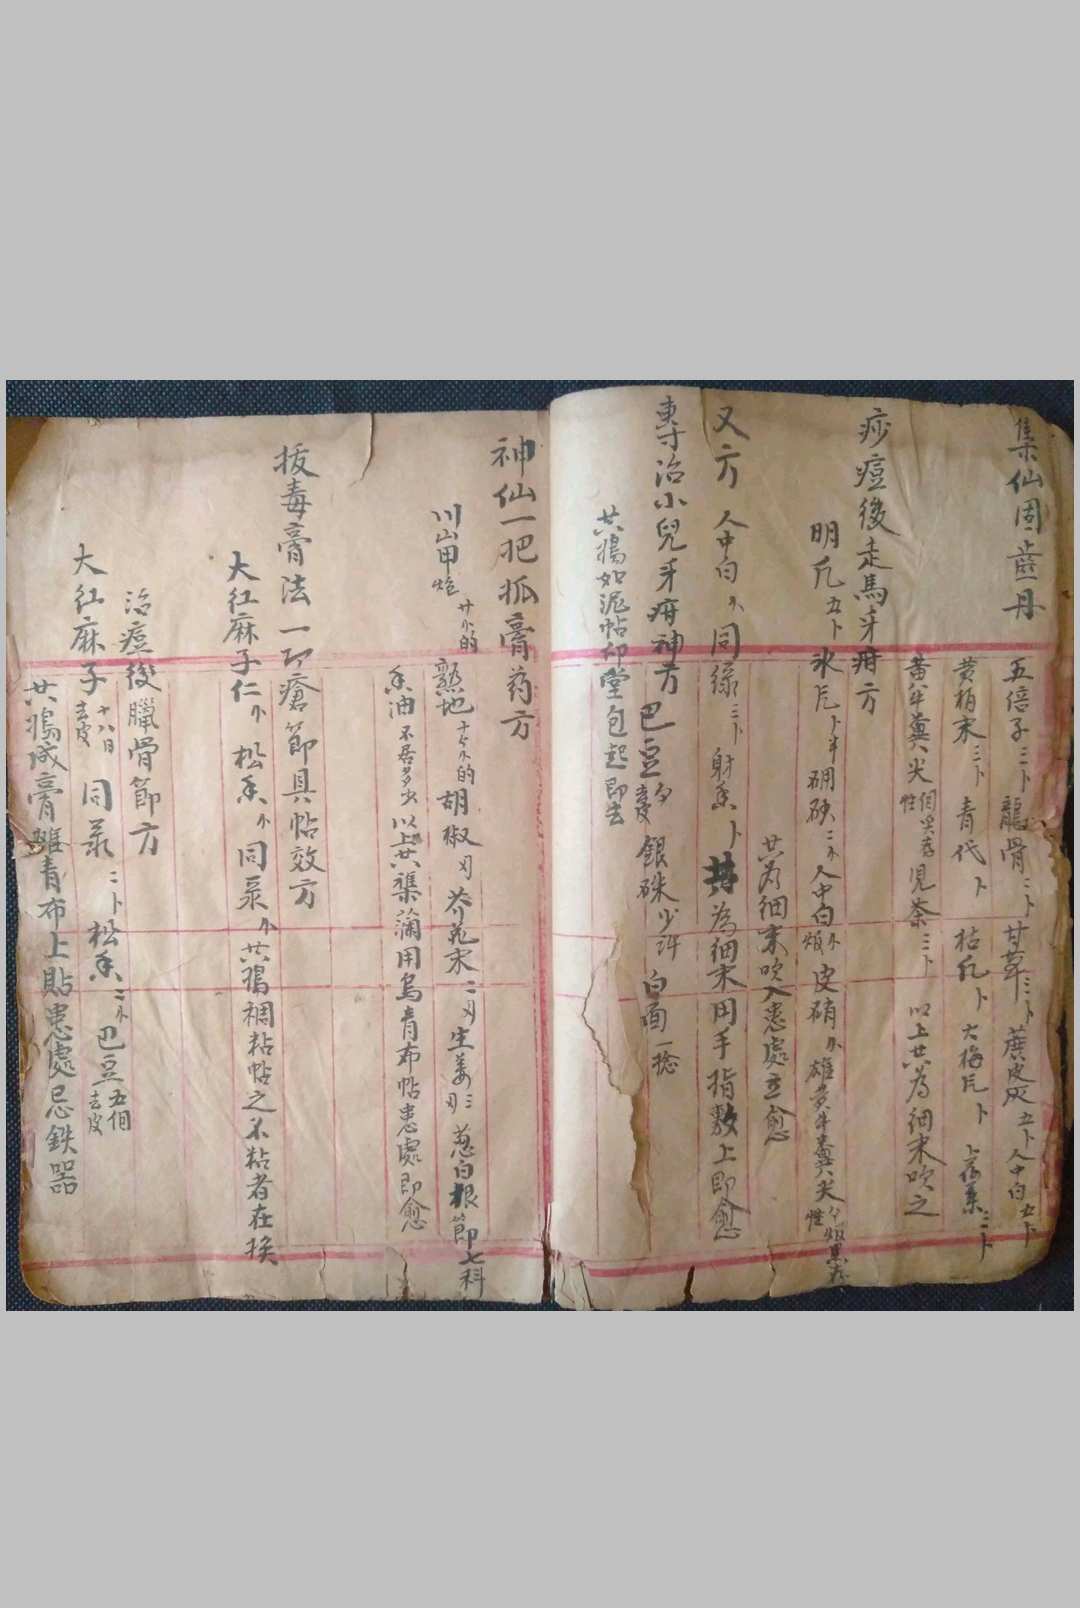 集仙固齒丹
五倍子三卜 龍骨二卜 甘草三卜 蔗皮灰五卜 人中白五卜
黄柏末三卜 青代卜 枯凡卜 大梅片卜
黄牛糞尖 性 兒茶三卜 以上共為細末吹之
痧痘後走馬牙疳方
明凡五卜 氷片卜半 硼砂二 人中白 煅 皮硝 雄 牛糞尖 性
共為細末吹入患處立愈
又方 人中白 同緑三卜 射香卜 共為細末用手指敷上即愈
專治小兒牙疳神方 巴豆 去皮 銀硃少許 白面一捻
共搗如泥帖印堂包起即去
神仙一把抓膏药方
川山甲炮 廿个的 熟地 十个的 胡椒 芥花末二 生姜三 葱白根節七科
香油不居多少 以上共 用烏青布帖患處即愈
拔毒膏法一切瘡節具帖效方
大红麻子仁 松香 同录 共搗稠粘帖之不粘者在挨
治痘後臘骨節方
大红麻子 去皮 同录二卜 松香二 巴豆五個 去皮
共搗成膏 青布上貼患處忌鉄器